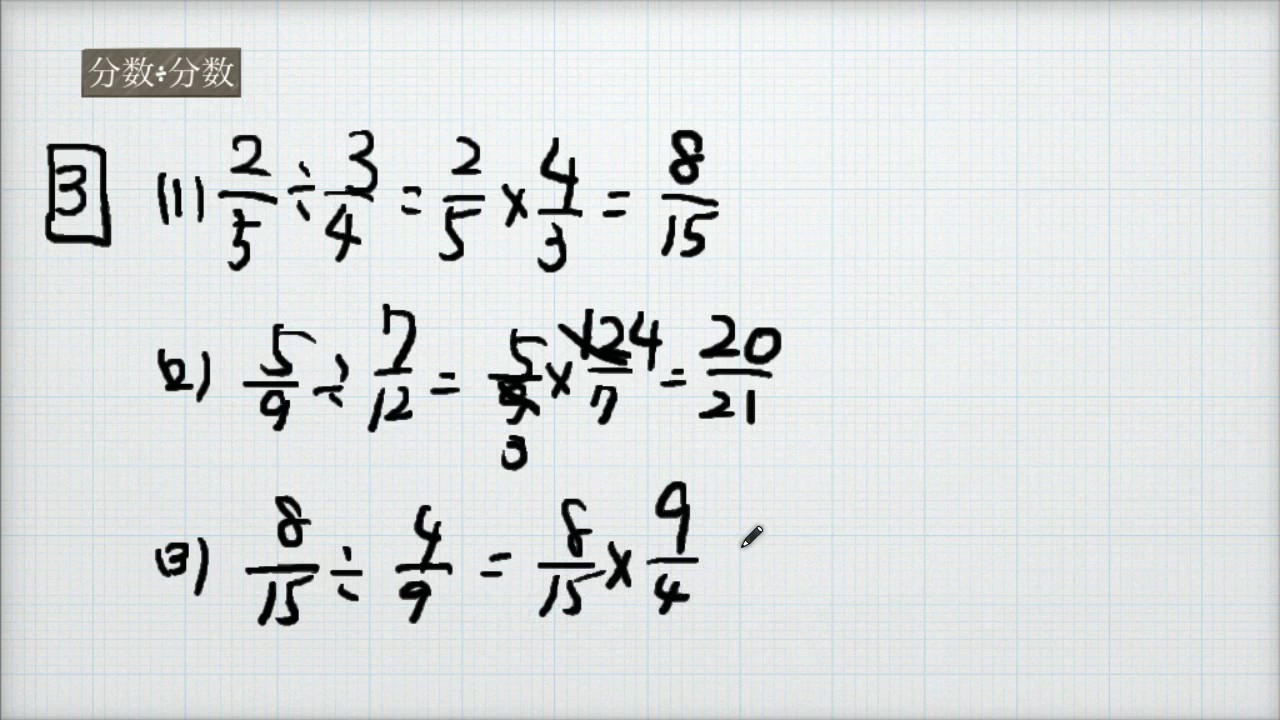 分数÷分数
3 (1) 2/5 ÷ 3/4 = 2/5 × 4/3 = 8/15
(2) 5/9 ÷ 7/12 = 5/9 3 × 12 4/7 = 20/21
(3) 8/15 ÷ 4/9 = 8/15 × 9/4